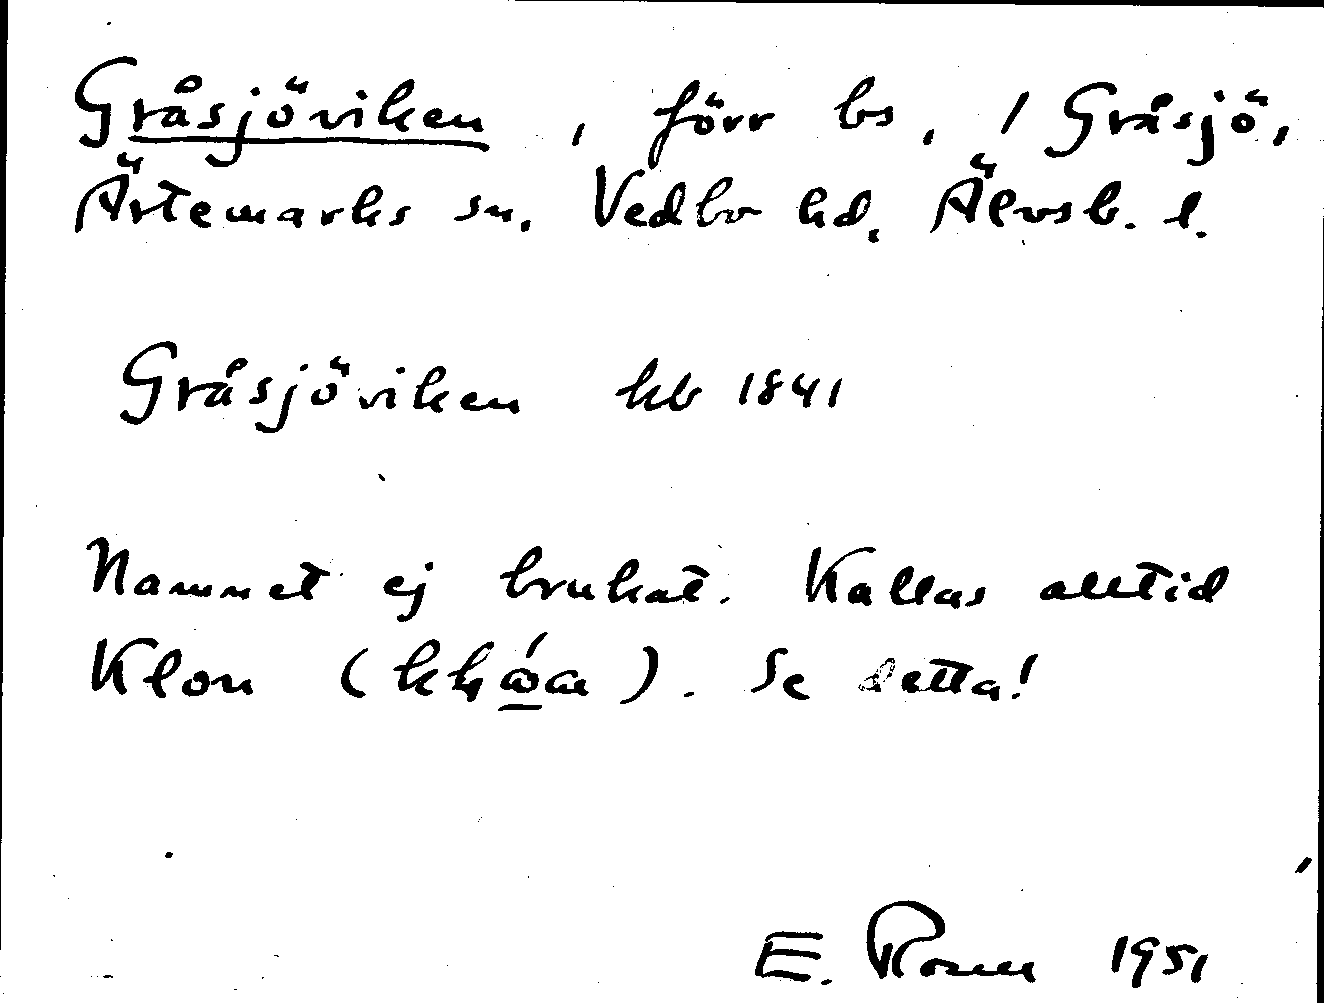 Gråsjöviken, förr bs, / Gråsjö,
Ärtemarks sn. Vedbo hd, Älvsb. l.
Gråsjöviken hb 1841
Namnet ej brukat. Kallas alltid
Klon ( ). Se detta!
E. Rosen 1951